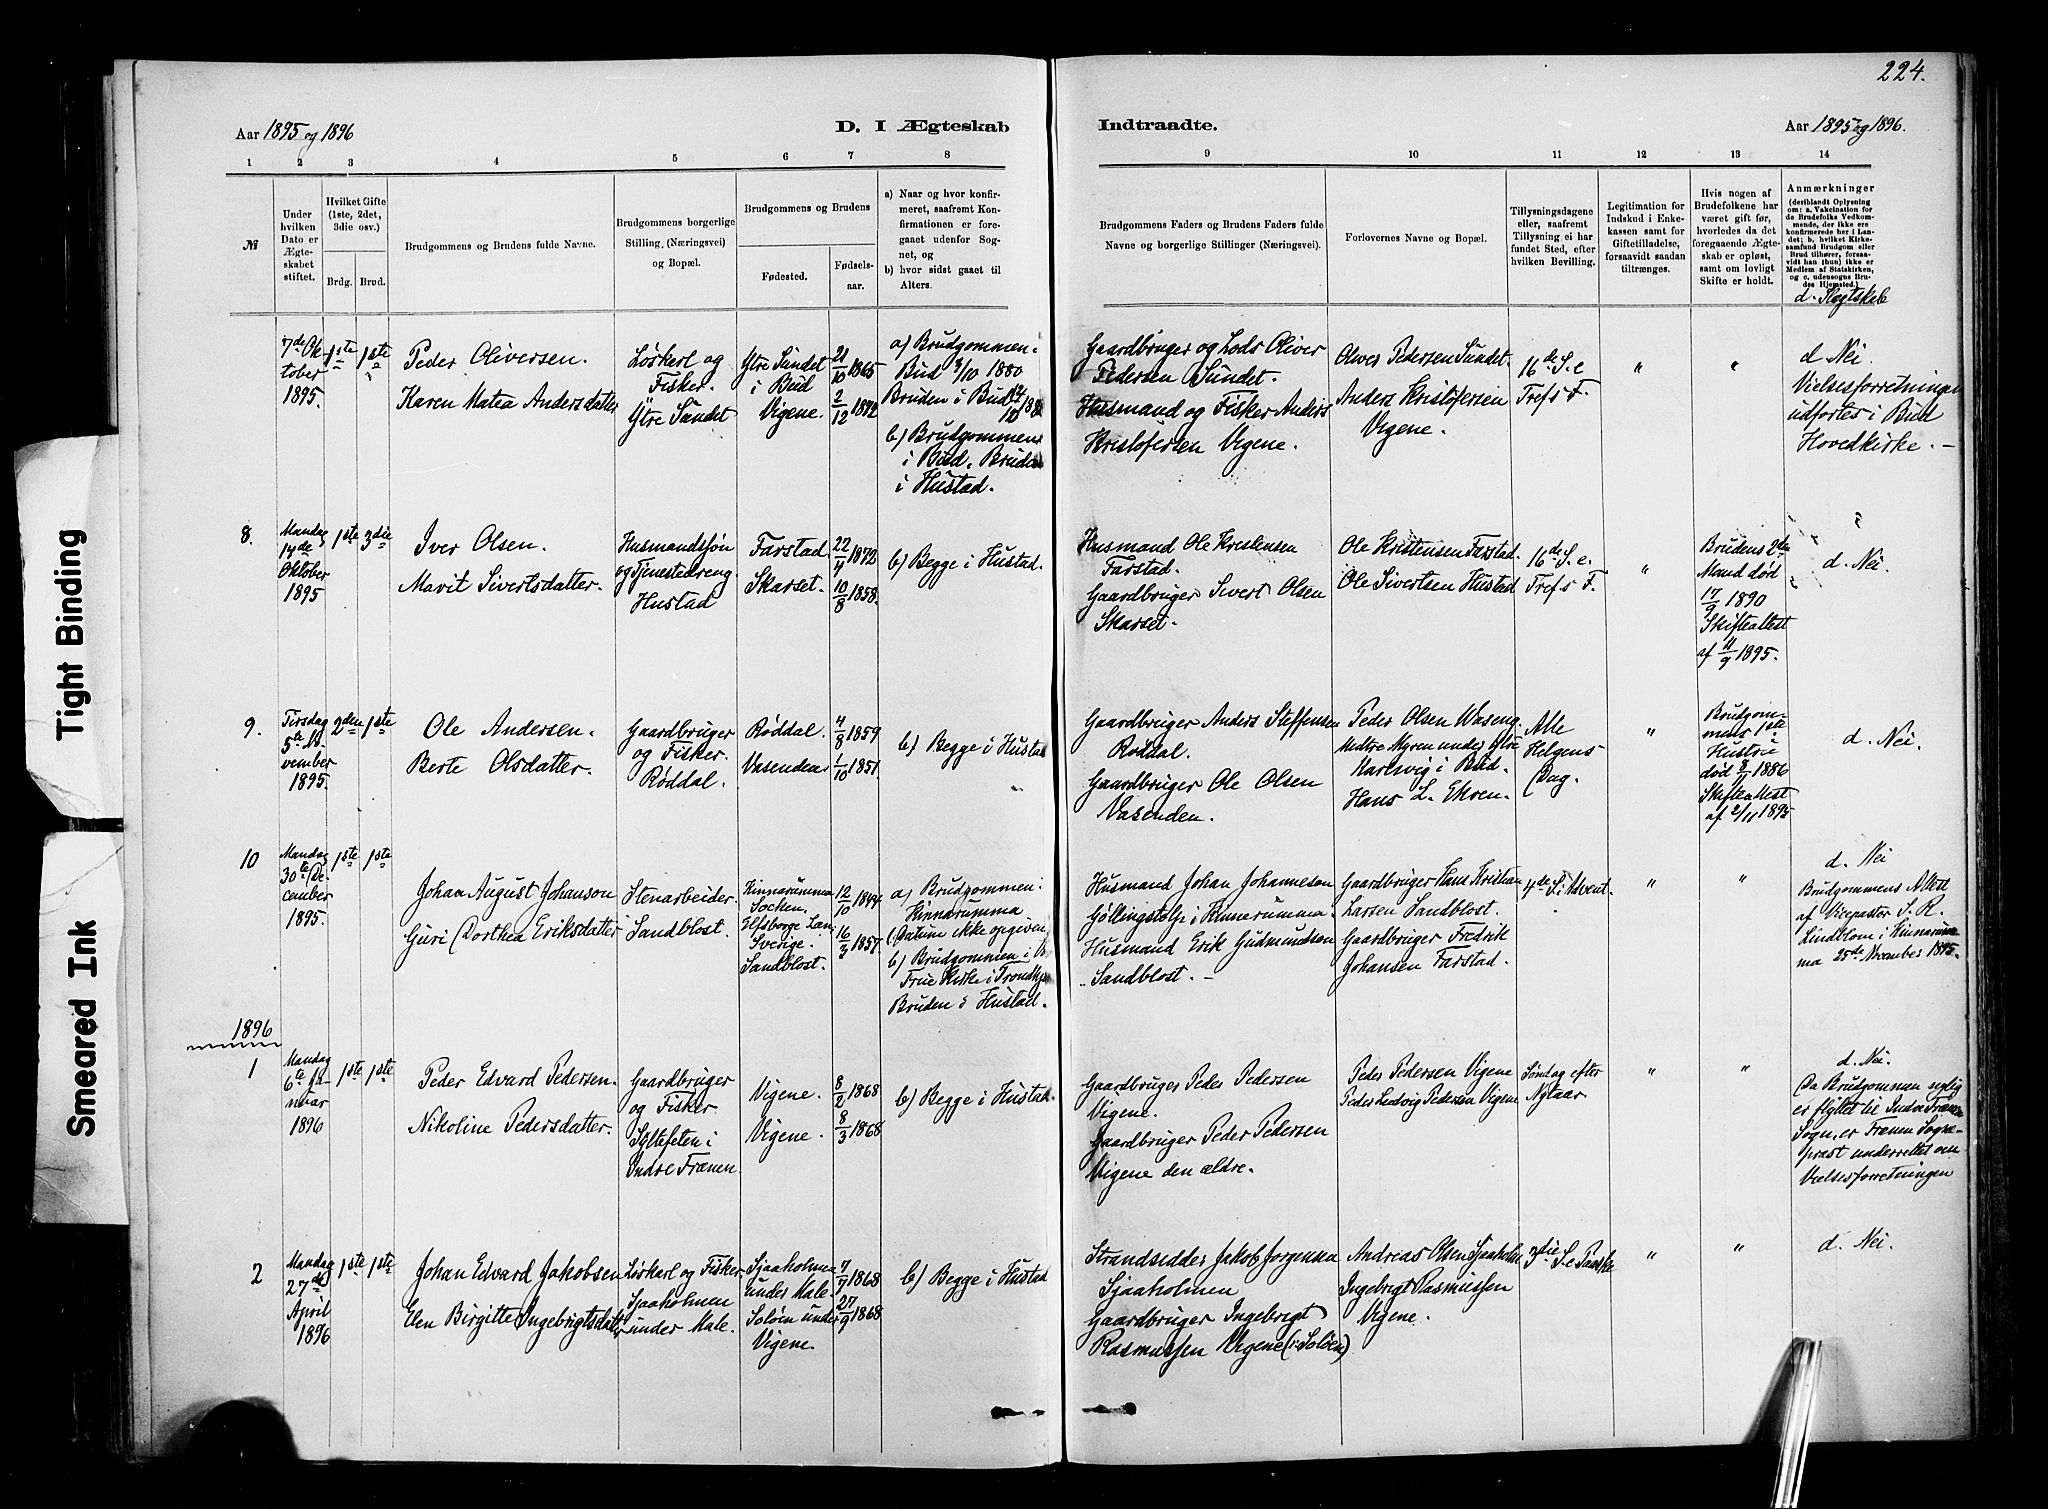 224.
Aar 1895 og 1896
D. I Ægteskab
Indtraadte.
Aar 1895 og 1896.
1 2 3 4 5 6 7 8
9 10 11 12 13 14
№
Under
hvilken
Dato er
Ægte-
skabet
stiftet.
Hvilket Gifte
(1ste, 2det,
3die osv.)
Brdg. Brud.
Brudgommens og Brudens fulde Navne.
Brudgommens borgerlige
Stilling, (Næringsvei)
og Bopæl.
Brudgommens og Brudens
Fødested.
Fødsels-
aar.
a) Naar og hvor konfir-
meret, saafremt Kon-
firmationen er fore-
gaaet udenfor Sog-
net, og
b) hvor sidst gaaet til
Alters.
Brudgommens Faders og Brudens Faders fulde
Navne og borgerlige Stillinger (Næringsvei).
Forlovernes Navne og Bopæl.
Tillysningsdagene
eller, saafremt
Tillysning ei har
fundet Sted, efter
hvilken Bevilling.
Legitimation for
Indskud i Enke-
kassen samt for
Giftetilladelse,
forsaavidt saadan
tiltrænges.
Hvis nogen af
Brudefolkene har
været gift før,
hvorledes da det
foregaaende Ægte-
skab er opløst,
samt om lovligt
Skifte er holdt.
Anmærkninger
(deriblandt Oplysning
om: a. Vakcination for
de Brudefolks Vedkom-
mende, der ikke ere
konfirmerede her i Lan-
det; b. hvilket Kirke-
samfund Brudgom eller
Brud tilhører, forsaa-
vidt han (hun) ikke er
Medlem af Statskirken,
og c. udensogns Bru-
des Hjemsted.)
d. Slegtskab
7de Ok-
tober
1895.
1ste 1ste
Peder Oliversen.
Karen Matea Andersdatter
Løskarl og
Fisker.
Ytre Sundet
Ytre Sundet
i Bud
Vigene.
21/10 1865
2/12 1872
a) Brudgommen i
Bud 3/10 1880
Bruden i Bud
b) Brudgommen
i Bud. Bruden
i Hustad.
Gaardbruger og Lods Oliver
Pedersen Sundet.
Husmand og Fisker Anders
Kristofersen Vigene.
Oliver Pedersen Sundet.
Anders Kristofersen
Vigene.
16de S. e
Tref. s F.
"
"
d Nei.
Vielsesforretningen
udførtes i Bud
Hovedkirke. -
8.
Mandag
14de
Oktober
1895
1ste 3die
Iver Olsen.
Marit Sivertsdatter.
Husmandssøn
og Tjenestedreng
Hustad
Farstad.
Skarset.
22/4 1872
10/8 1858.
b) Begge i Hustad.
Husmand Ole Kristensen
Farstad.
Gaardbruger Sivert Olsen
Skarset.
Ole Kristensen Farstad.
Ole Sivertsen Hustad
16de S. e.
Tref s F.
"
Brudens 2den
Mand død
17/9 1890
Skifteattest
af 11/9 1895.
d. Nei.
9.
Tirsdag
5te No-
vember
1895.
2den 1ste
Ole Andersen.
Berte Olsdatter.
Gaardbruger
og Fisker.
Røddal.
Røddal.
Vasenden
4/8 1859
1/10 1851
b) Begge i Hustad
Gaardbruger Anders Steffensen
Røddal.
Gaardbruger Ole Olsen
Vasenden.
Peder Olsen Waseng
Nedre Myren under Ytre
Harlsvig i Bud.
Hans L. Ekren.
Alle
Helgens
Dag.
"
Brudgom-
mens 1ste
Hustru
død 1886
Skifteattest
af 2/11 1895
d. Nei.
10
Mandag
30te De-
cember
1895.
1ste 1ste
Johan August Johanson
Guri Dorthea Eriksdatter
Stenarbeider
Sandblost.
Kinnarumma
Socken.
Elfsborgs Län,
Sverige.
Sandblost.
12/10 1844
16/3 1857.
a) Brudgommen i
Kinnarumma
(Datum ikke opgiven)
b) Brudgommen i V.
Frue Kirke i Trondhjem
Bruden i Hustad.
Husmand Johan Johannesen
Göllingstolp i Kinnerumma.
Husmand Erik Gudmundsen
Sandblost. -
Gaardbruger Hans Kristian
Larsen Sandblost.
Gaardbruger Fredrik
Johansen Farstad.
4de S. i Advent.
"
"
d. Nei
Brudgommens Attest
af Vicepastor S. R.
Lindblom i Kinnarum-
ma 25de November 1895.
1896
1
Mandag
6te Ja-
nuar
1896
1ste 1ste
Peder Edvard Pedersen.
Nikoline Pedersdatter.
Gaardbruger
og Fisker
Syltefeten i
Indre Frænen.
Vigene.
Vigene.
8/2 1868
8/3 1868
b) Begge i Hustad.
Gaardbruger Peder Pedersen
Vigene.
Gaardbruger Peder Pedersen
Vigene den ældre.
Peder Pedersen Vigene
Peder Ludvig Pedersen Vigene
Søndag efter
Nytaar
"
"
d. Nei.
Da Brudgommen nylig
er flyttet til Indre Frænen
Sogn, er Frænen Sogne-
præst underrettet om
Vielsesforretningen
2
Mandag
27de
April
1896
1ste 1ste
Johan Edvard Jakobsen
Elen Birgitte Ingebrigtsdatter
Løskarl og Fisker
Sjaaholmen
under Male.
Sjaaholmen
under Male.
Soløen under
Vigene.
7/7 1868
27/9 1868
b) Begge i Hustad
Strandsidder Jakob Jørgensen
Sjaaholmen
Gaardbruger Ingebrigt
Rasmussen Vigene (i Soløen)
Andreas Olsen Sjaaholm
Ingebrigt Rasmussen
Vigene.
3die S. e Paaske
"
"
d. Nei.
Tight Binding
Smeared Ink